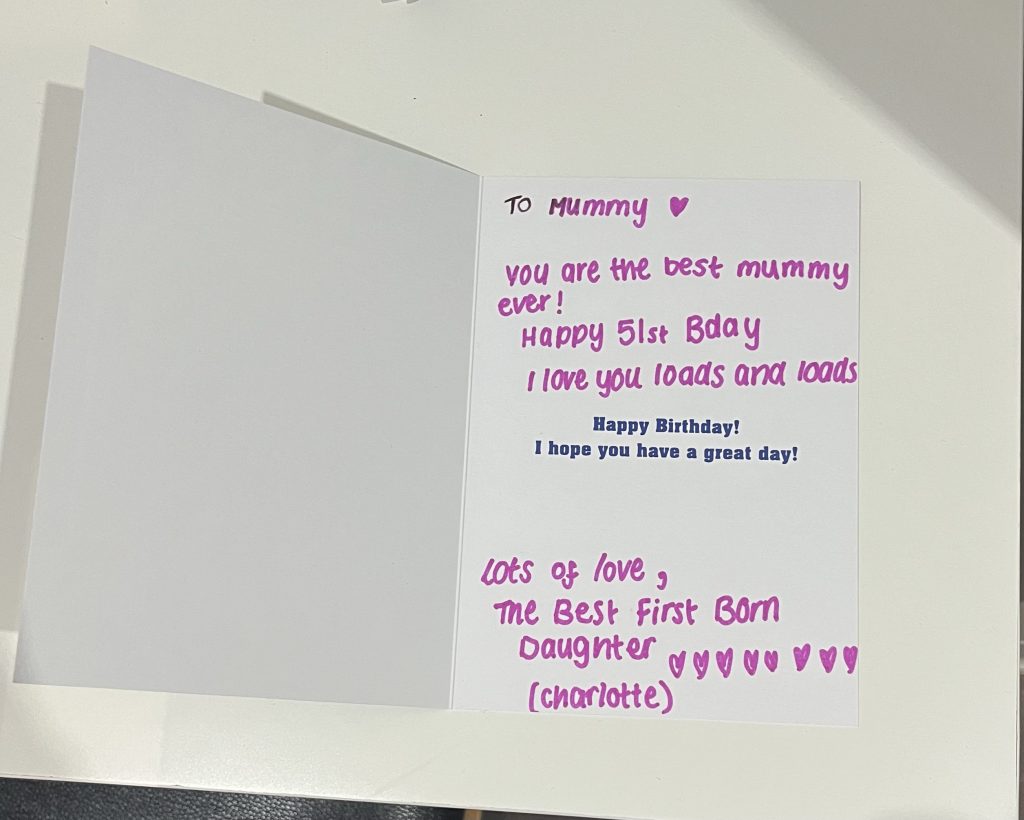 TO Mummy ♥
you are the best mummy
ever!
Happy 51st Bday
I love you loads and loads
Happy Birthday!
I hope you have a great day!
Lots of love,
The Best First Born
Daughter ♥♥♥♥♥ ♥♥♥
(charlotte)